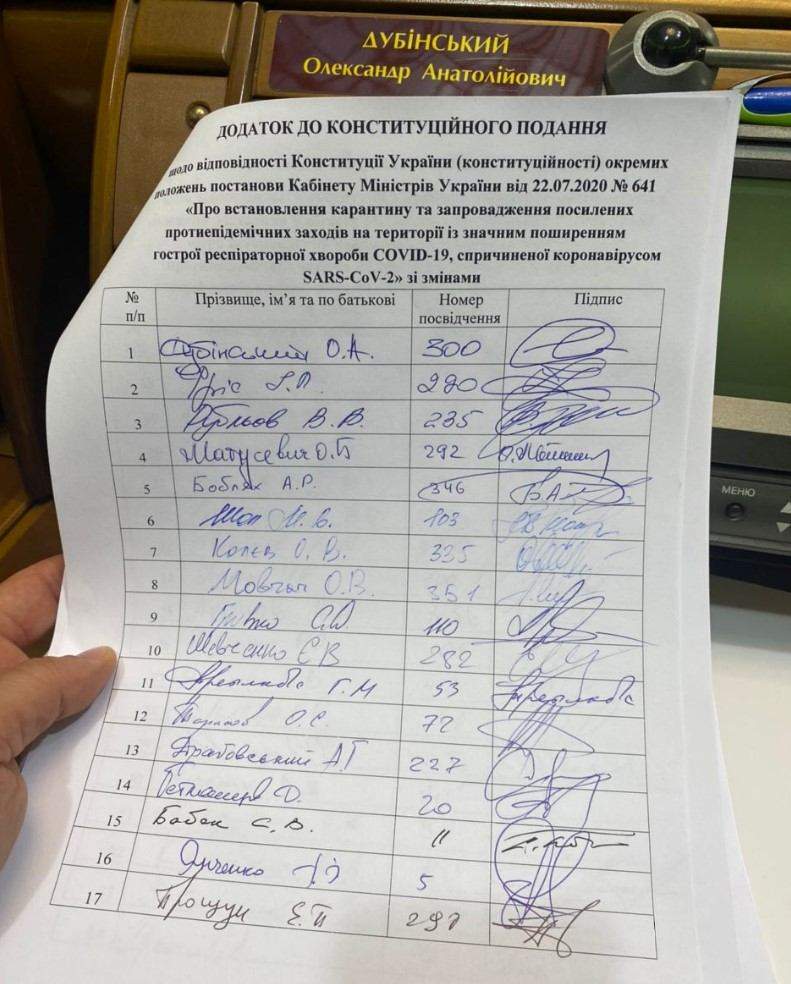 ДУБІНСЬКИЙ
Олександр Анатолійович
ДОДАТОК ДО КОНСТИТУЦІЙНОГО ПОДАННЯ
щодо відповідності Конституції України (конституційності) окремих
положень постанови Кабінету Міністрів України від 22.07.2020 № 641
«Про встановлення карантину та запровадження посилених
протиепідемічних заходів на території із значним поширенням
гострої респіраторної хвороби COVID-19, спричиненої коронавірусом
SARS-CoV-2» зі змінами
№ п/п Прізвище, ім’я та по батькові Номер посвідчення Підпис
1 Дубінський О.А. 300
2 Фріс І.П. 220
3 В. В. 235
4 Матусевич О.Б 292
5 Бобляк А.Р. 346
6 103
7 О. В. 335
8 Мовчан О.В. 351
9 Гривко С.Д. 110
10 Шевченко Є В 282
11 Третьякова Г. М 53
12 О.С. 72
13 Грабовський 227
14 Гетманцев Д. 20
15 Бабак С. В. 11
16 5
17 Прощук Е.П 297
МЕНЮ